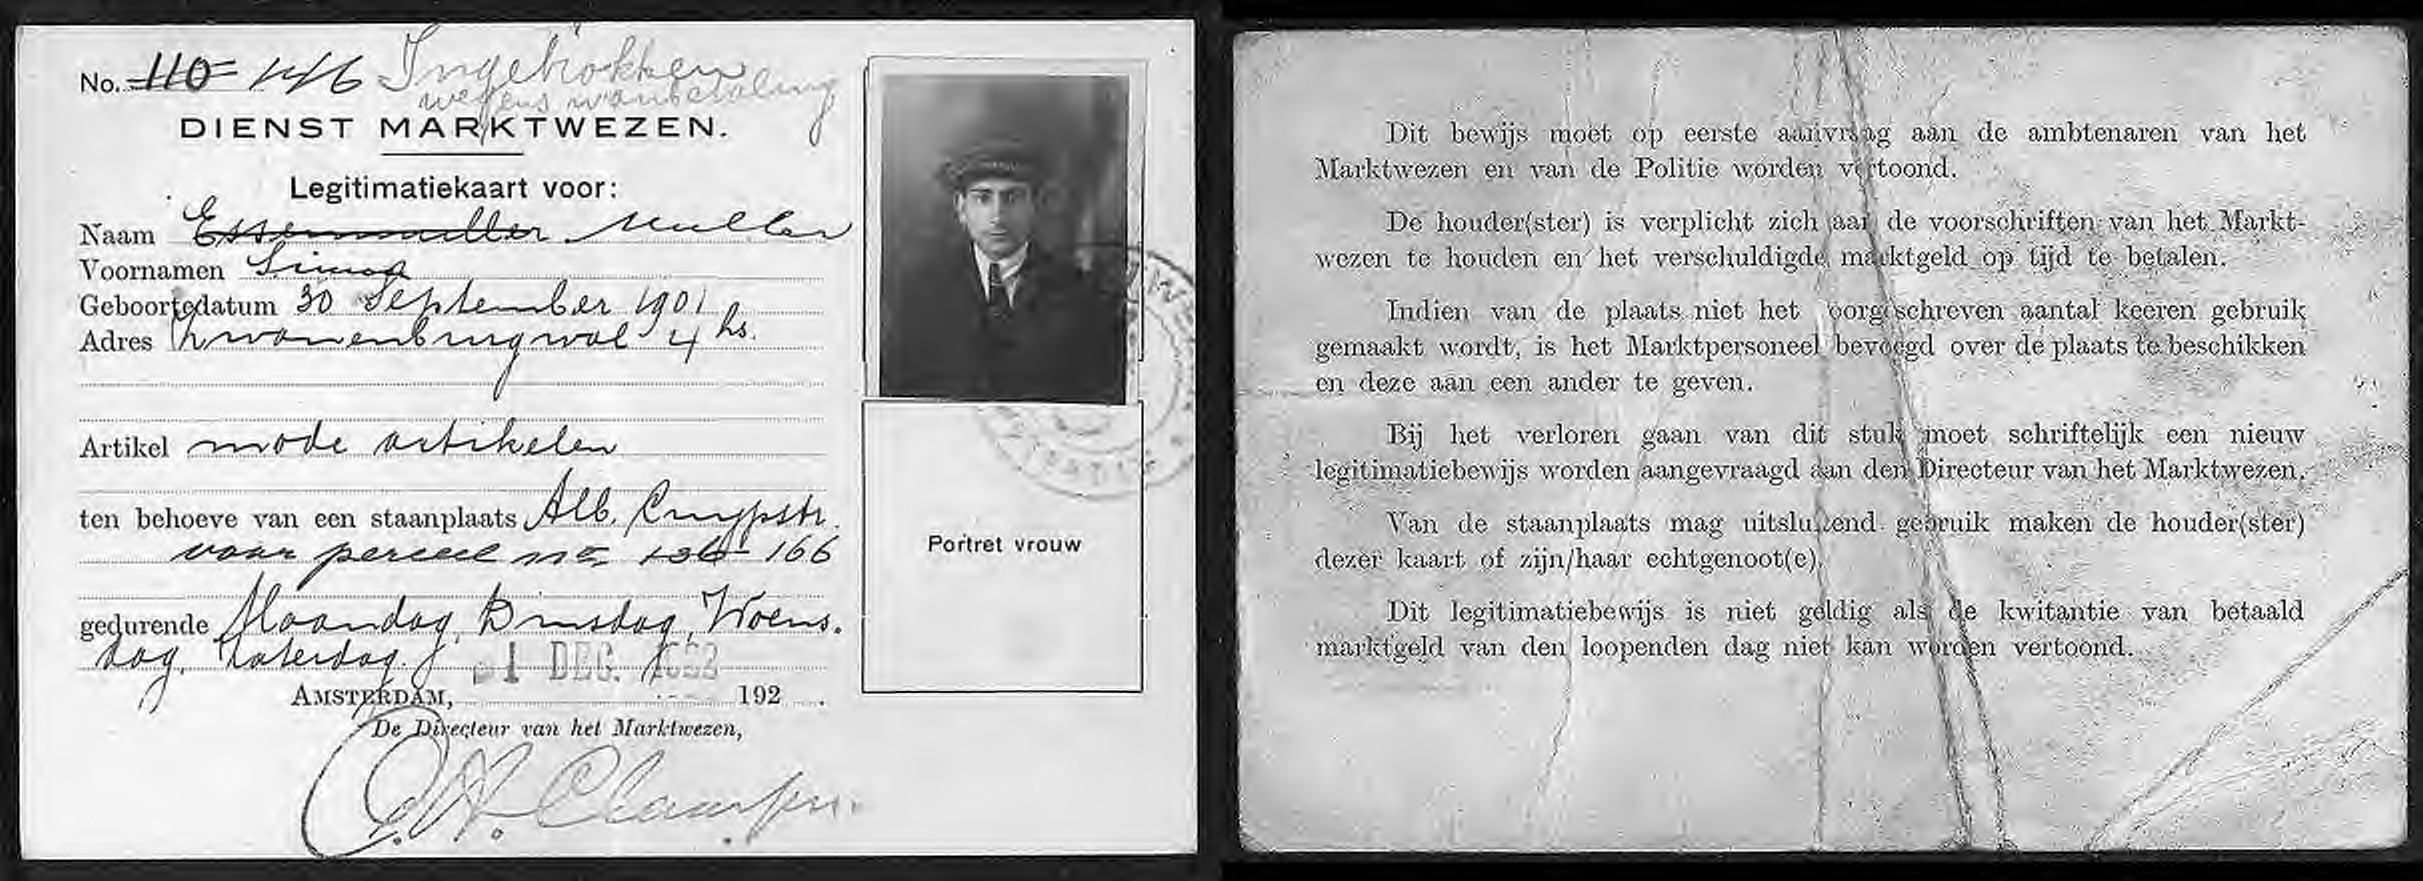 No. 110 146 Ingetrokken
wegens wanbetaling
DIENST MARKTWEZEN.
Legitimatiekaart voor:
Naam Essenmuller Muller
Voornamen Simon
Geboortedatum 30 September 1901
Adres Zwanenburgwal 4 hs.
Artikel mode artikelen
ten behoeve van een staanplaats Alb. Cuypstr.
voor perceel no. 136 166
gedurende Maandag, Dinsdag, Woens.
dag, Zaterdag.
1 DEC.
AMSTERDAM, 192 .
De Directeur van het Marktwezen,
Portret vrouw
Dit bewijs moet op eerste aanvraag aan de ambtenaren van het
Marktwezen en van de Politie worden vertoond.
De houder(ster) is verplicht zich aan de voorschriften van het Markt-
wezen te houden en het verschuldigde marktgeld op tijd te betalen.
Indien van de plaats niet het voorgeschreven aantal keeren gebruik
gemaakt wordt, is het Marktpersoneel bevoegd over de plaats te beschikken
en deze aan een ander te geven.
Bij het verloren gaan van dit stuk moet schriftelijk een nieuw
legitimatiebewijs worden aangevraagd aan den Directeur van het Marktwezen.
Van de staanplaats mag uitsluitend gebruik maken de houder(ster)
dezer kaart of zijn/haar echtgenoot(e).
Dit legitimatiebewijs is niet geldig als de kwitantie van betaald
marktgeld van den loopenden dag niet kan worden vertoond.